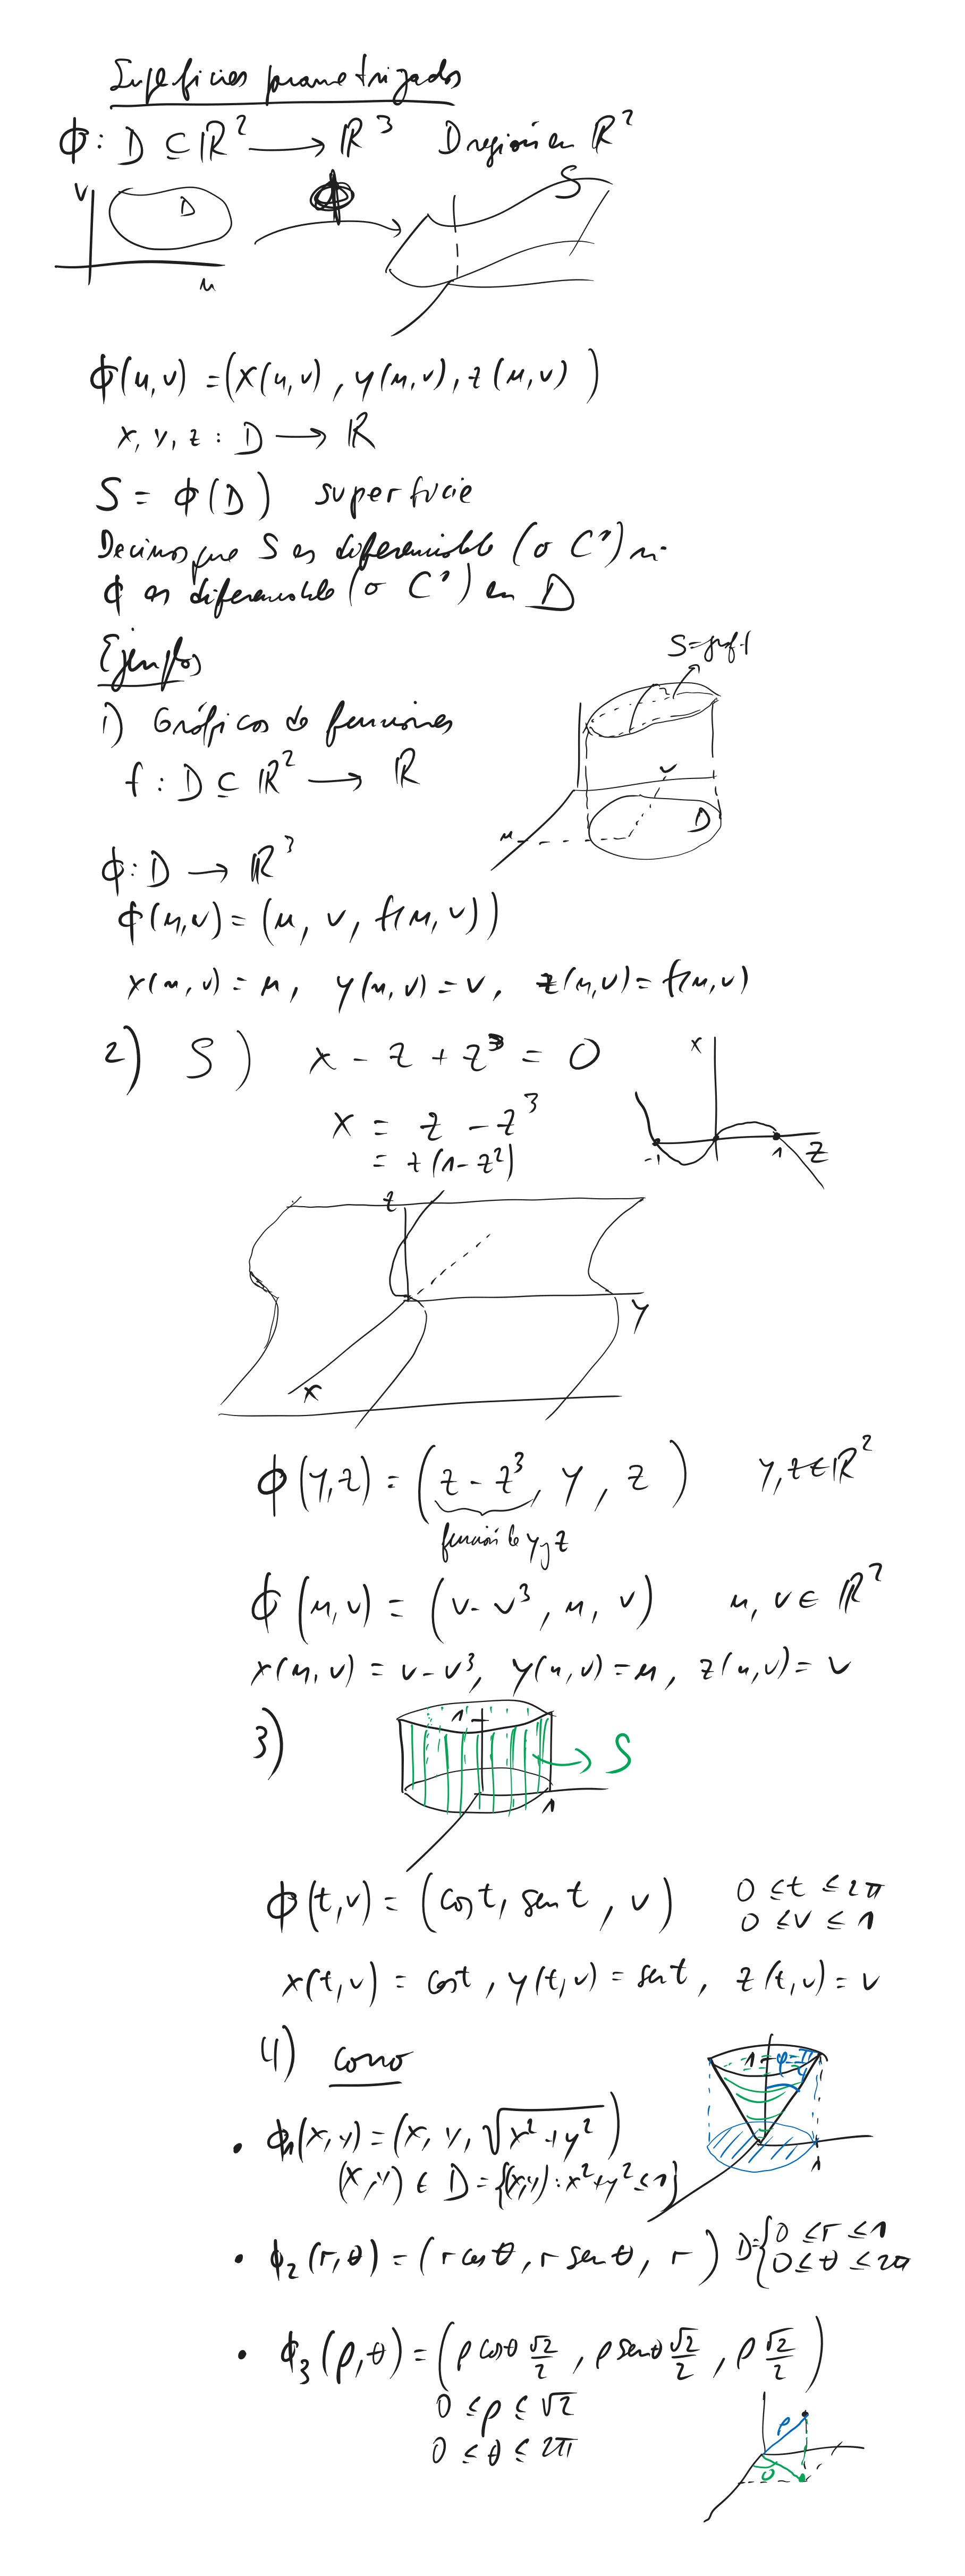 Superficies parametrizadas
ϕ: D ⊆ ℝ² → ℝ³ D región en ℝ²
v D ϕ S
u
ϕ(u,v) = (x(u,v), y(u,v), z(u,v))
x, y, z : D → ℝ
S = ϕ(D) superficie
Decimos que S es diferenciable (o C¹) si
ϕ es diferenciable (o C¹) en D
Ejemplos
S=graf f
1) Gráficos de funciones
f : D ⊆ ℝ² → ℝ
v
u D
ϕ: D → ℝ³
ϕ(u,v) = (u, v, f(u,v))
x(u,v) = u, y(u,v) = v, z(u,v) = f(u,v)
2) S) x - z + z³ = 0
x
x = z - z³
= z(1-z²)
-1 1 z
z
y
x
ϕ(y,z) = (z - z³, y, z) y,z ∈ ℝ²
función de y y z
ϕ(u,v) = (v - v³, u, v) u, v ∈ ℝ²
x(u,v) = v - v³, y(u,v) = u, z(u,v) = v
3) 1 S
1
ϕ(t,v) = (cos t, sen t, v) 0 ≤ t ≤ 2π
0 ≤ v ≤ 1
x(t,v) = cos t, y(t,v) = sen t, z(t,v) = v
4) cono
1 φ=π/4
1
• ϕ₁(x,y) = (x, y, √(x²+y²))
(x,y) ∈ D = {(x,y) : x²+y² ≤ 1}
• ϕ₂(r,θ) = (r cos θ, r sen θ, r) D={0 ≤ r ≤ 1
0 ≤ θ ≤ 2π
• ϕ₃(ρ,θ) = (ρ cos θ √2/2, ρ sen θ √2/2, ρ √2/2)
0 ≤ ρ ≤ √2
0 ≤ θ ≤ 2π
ρ
θ